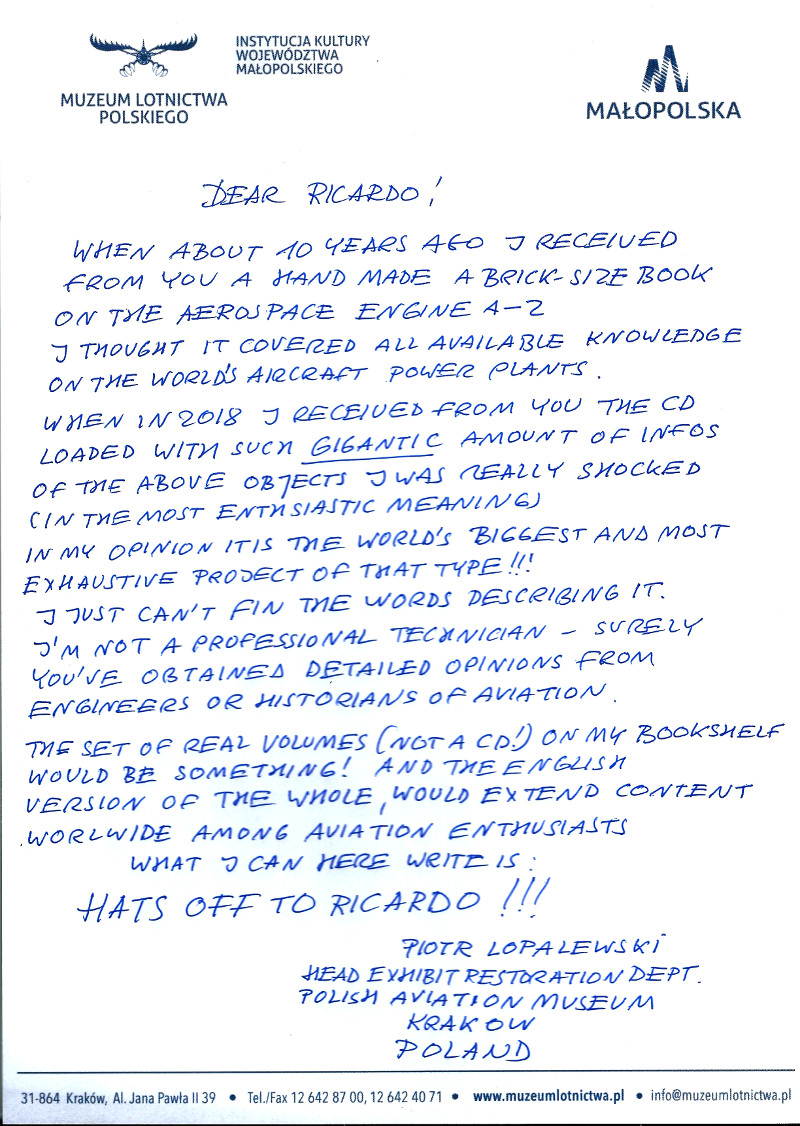 MUZEUM LOTNICTWA
POLSKIEGO
INSTYTUCJA KULTURY
WOJEWÓDZTWA
MAŁOPOLSKIEGO
MAŁOPOLSKA
DEAR RICARDO!
WHEN ABOUT 10 YEARS AGO I RECEIVED
FROM YOU A HAND MADE A BRICK-SIZE BOOK
ON THE AEROSPACE ENGINE A-Z
I THOUGHT IT COVERED ALL AVAILABLE KNOWLEDGE
ON THE WORLD'S AIRCRAFT POWER PLANTS.
WHEN IN 2018 I RECEIVED FROM YOU THE CD
LOADED WITH SUCH GIGANTIC AMOUNT OF INFOS
OF THE ABOVE OBJECTS I WAS REALLY SHOCKED
(IN THE MOST ENTHSIASTIC MEANING)
IN MY OPINION IT IS THE WORLD'S BIGGEST AND MOST
EXHAUSTIVE PROJECT OF THAT TYPE!!!
I JUST CAN'T FIN THE WORDS DESCRIBING IT.
I'M NOT A PROFESSIONAL TECHNICIAN - SURELY
YOU'VE OBTAINED DETAILED OPINIONS FROM
ENGINEERS OR HISTORIANS OF AVIATION.
THE SET OF REAL VOLUMES (NOT A CD!) ON MY BOOKSHELF
WOULD BE SOMETHING! AND THE ENGLISH
VERSION OF THE WHOLE, WOULD EXTEND CONTENT
WORLWIDE AMONG AVIATION ENTHUSIASTS
WHAT I CAN HERE WRITE IS:
HATS OFF TO RICARDO!!!
PIOTR LOPALEWSKI
HEAD EXHIBIT RESTORATION DEPT.
POLISH AVIATION MUSEUM
KRAKOW
POLAND
31-864 Kraków, Al. Jana Pawła II 39 • Tel./Fax 12 642 87 00, 12 642 40 71 • www.muzeumlotnictwa.pl • info@muzeumlotnictwa.pl